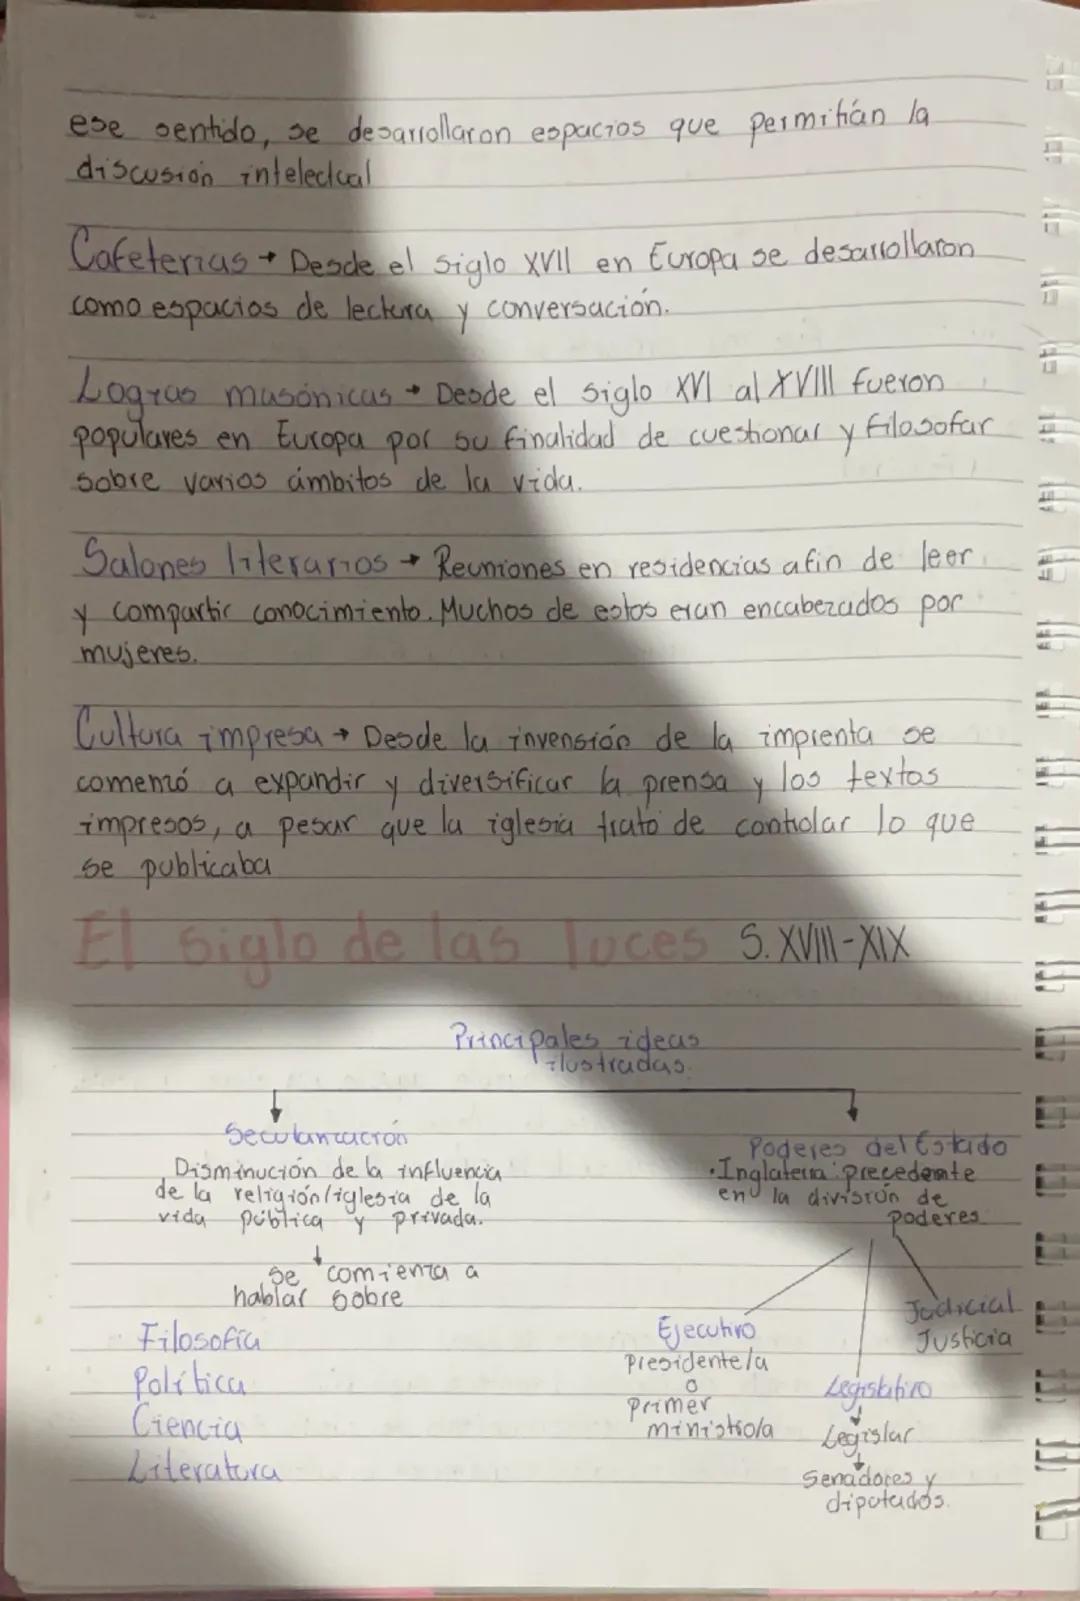 ese sentido, se desarrollaron espacios que permitián la
discusión intelectual
Cafeterias → Desde el siglo XVII en Europa se desarrollaron
como espacios de lectura y conversación.
Logias masónicas → Desde el siglo XVI al XVIII fueron
populares en Europa por su finalidad de cuestionar y filosofar
sobre varios ámbitos de la vida.
Salones literarios → Reuniones en residencias afin de leer
y compartir conocimiento. Muchos de estos eran encabezados por
mujeres.
Cultura impresa → Desde la invensión de la imprenta se
comenzó a expandir y diversificar la prensa y los textos
impresos, a pesar que la iglesia trato de controlar lo que
se publicaba
El siglo de las luces S. XVIII-XIX
Principales ideas
ilustradas.
Secularización
Disminución de la influencia
de la religión/iglesia de la
vida pública y privada.
↓
Se comienza a
hablar sobre
Filosofía
Política
Ciencia
Literatura
Poderes del Estado
• Inglaterra: precedente
en la división de
poderes
Ejecutivo
presidente/a
o
primer
ministro/a
Legislativo
↓
Legislar
↓
Senadores y
diputados.
Judicial
Justicia